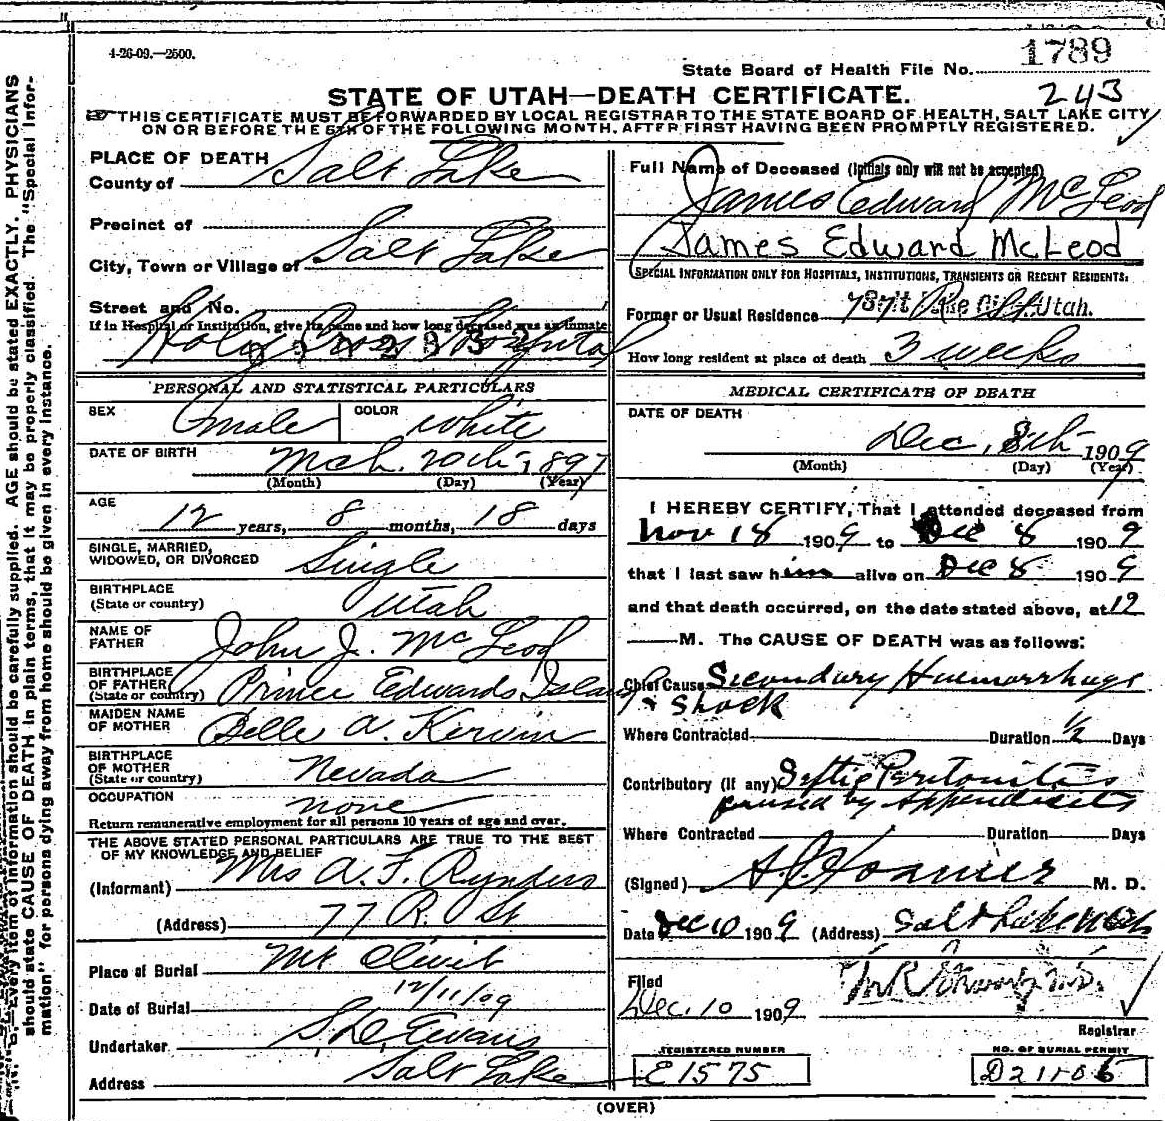 4-26-09.—2500.
1789
State Board of Health File No.
243
STATE OF UTAH—DEATH CERTIFICATE.
THIS CERTIFICATE MUST BE FORWARDED BY LOCAL REGISTRAR TO THE STATE BOARD OF HEALTH, SALT LAKE CITY
ON OR BEFORE THE 5TH OF THE FOLLOWING MONTH, AFTER FIRST HAVING BEEN PROMPTLY REGISTERED.
PLACE OF DEATH
County of Salt Lake
Precinct of
City, Town or Village of Salt Lake
Street and No.
If in Hospital or Institution, give its name and how long deceased was an inmate
Holy Cross Hospital
PERSONAL AND STATISTICAL PARTICULARS
SEX male COLOR white
DATE OF BIRTH Mch. 20th 1897
(Month) (Day) (Year)
AGE 12 years, 8 months, 18 days
SINGLE, MARRIED,
WIDOWED, OR DIVORCED Single
BIRTHPLACE
(State or country) Utah
NAME OF
FATHER John J. McLeod
BIRTHPLACE
OF FATHER
(State or country) Prince Edwards Island
MAIDEN NAME
OF MOTHER Belle A. Kerwin
BIRTHPLACE
OF MOTHER
(State or country) Nevada
OCCUPATION none
Return remunerative employment for all persons 10 years of age and over.
THE ABOVE STATED PERSONAL PARTICULARS ARE TRUE TO THE BEST
OF MY KNOWLEDGE AND BELIEF
(Informant) Mrs A. F. Rynders
(Address) 77 R. St
Place of Burial Mt Olivit
Date of Burial 12/11/09
Undertaker S. D. Evans
Address Salt Lake
Full Name of Deceased (Initials only will not be accepted)
James Edward McLeod
James Edward McLeod
(SPECIAL INFORMATION ONLY FOR HOSPITALS, INSTITUTIONS, TRANSIENTS OR RECENT RESIDENTS.
Former or Usual Residence Utah.
How long resident at place of death 3 weeks
MEDICAL CERTIFICATE OF DEATH
DATE OF DEATH
Dec. 8th 1909
(Month) (Day) (Year)
I HEREBY CERTIFY, That I attended deceased from
Nov 18 1909 to Dec 8 1909
that I last saw him alive on Dec 8 1909
and that death occurred, on the date stated above, at 12
M. The CAUSE OF DEATH was as follows:
Chief Cause Secondary Haemorrhage
& Shock
Where Contracted Duration 1/2 Days
Contributory (if any) Septic Peritonitis
caused by Appendicitis
Where Contracted Duration Days
(Signed) M. D.
Date Dec 10 1909 (Address) Salt Lake
Filed
Dec. 10 1909
Registrar
REGISTERED NUMBER
E1575
NO. OF BURIAL PERMIT
D21105
(OVER)
Every item of information should be carefully supplied. AGE should be stated EXACTLY. PHYSICIANS
should state CAUSE OF DEATH in plain terms, that it may be properly classified. The "Special Infor-
mation" for persons dying away from home should be given in every instance.